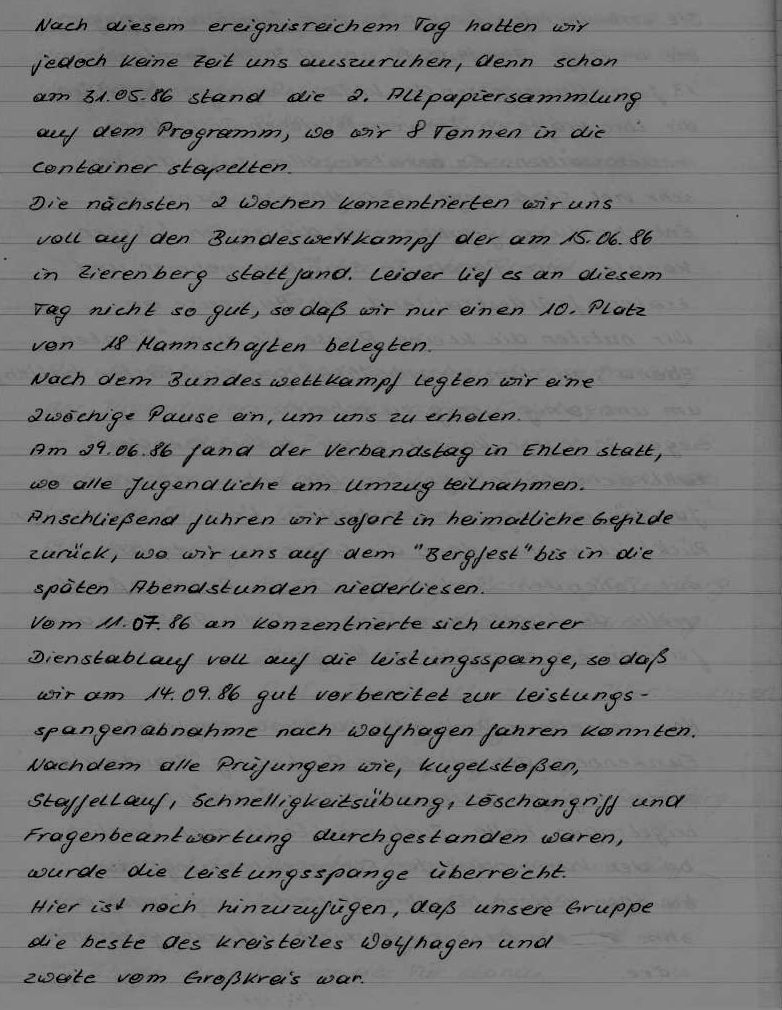 Nach diesem ereignisreichem Tag hatten wir
jedoch keine Zeit uns auszuruhen, denn schon
am 31.05.86 stand die 2. Altpapiersammlung
auf dem Programm, wo wir 8 Tonnen in die
Container stapelten.
Die nächsten 2 Wochen konzentrierten wir uns
voll auf den Bundeswettkampf der am 15.06.86
in Zierenberg stattfand. Leider lief es an diesem
Tag nicht so gut, so daß wir nur einen 10. Platz
von 18 Mannschaften belegten.
Nach dem Bundeswettkampf legten wir eine
2wöchige Pause ein, um uns zu erholen.
Am 29.06.86 fand der Verbandstag in Ehlen statt,
wo alle Jugendliche am Umzug teilnahmen.
Anschließend fuhren wir sofort in heimatliche Gefilde
zurück, wo wir uns auf dem "Bergfest" bis in die
späten Abendstunden niederliesen.
Vom 11.07.86 an konzentrierte sich unserer
Dienstablauf voll auf die Leistungsspange, so daß
wir am 14.09.86 gut vorbereitet zur Leistungs-
spangenabnahme nach Wolfhagen fahren konnten.
Nachdem alle Prüfungen wie, Kugelstoßen,
Staffellauf, Schnelligkeitsübung, Löschangriff und
Fragenbeantwortung durchgestanden waren,
wurde die Leistungsspange überreicht.
Hier ist noch hinzuzufügen, daß unsere Gruppe
die beste des Kreisteiles Wolfhagen und
zweite vom Großkreis war.